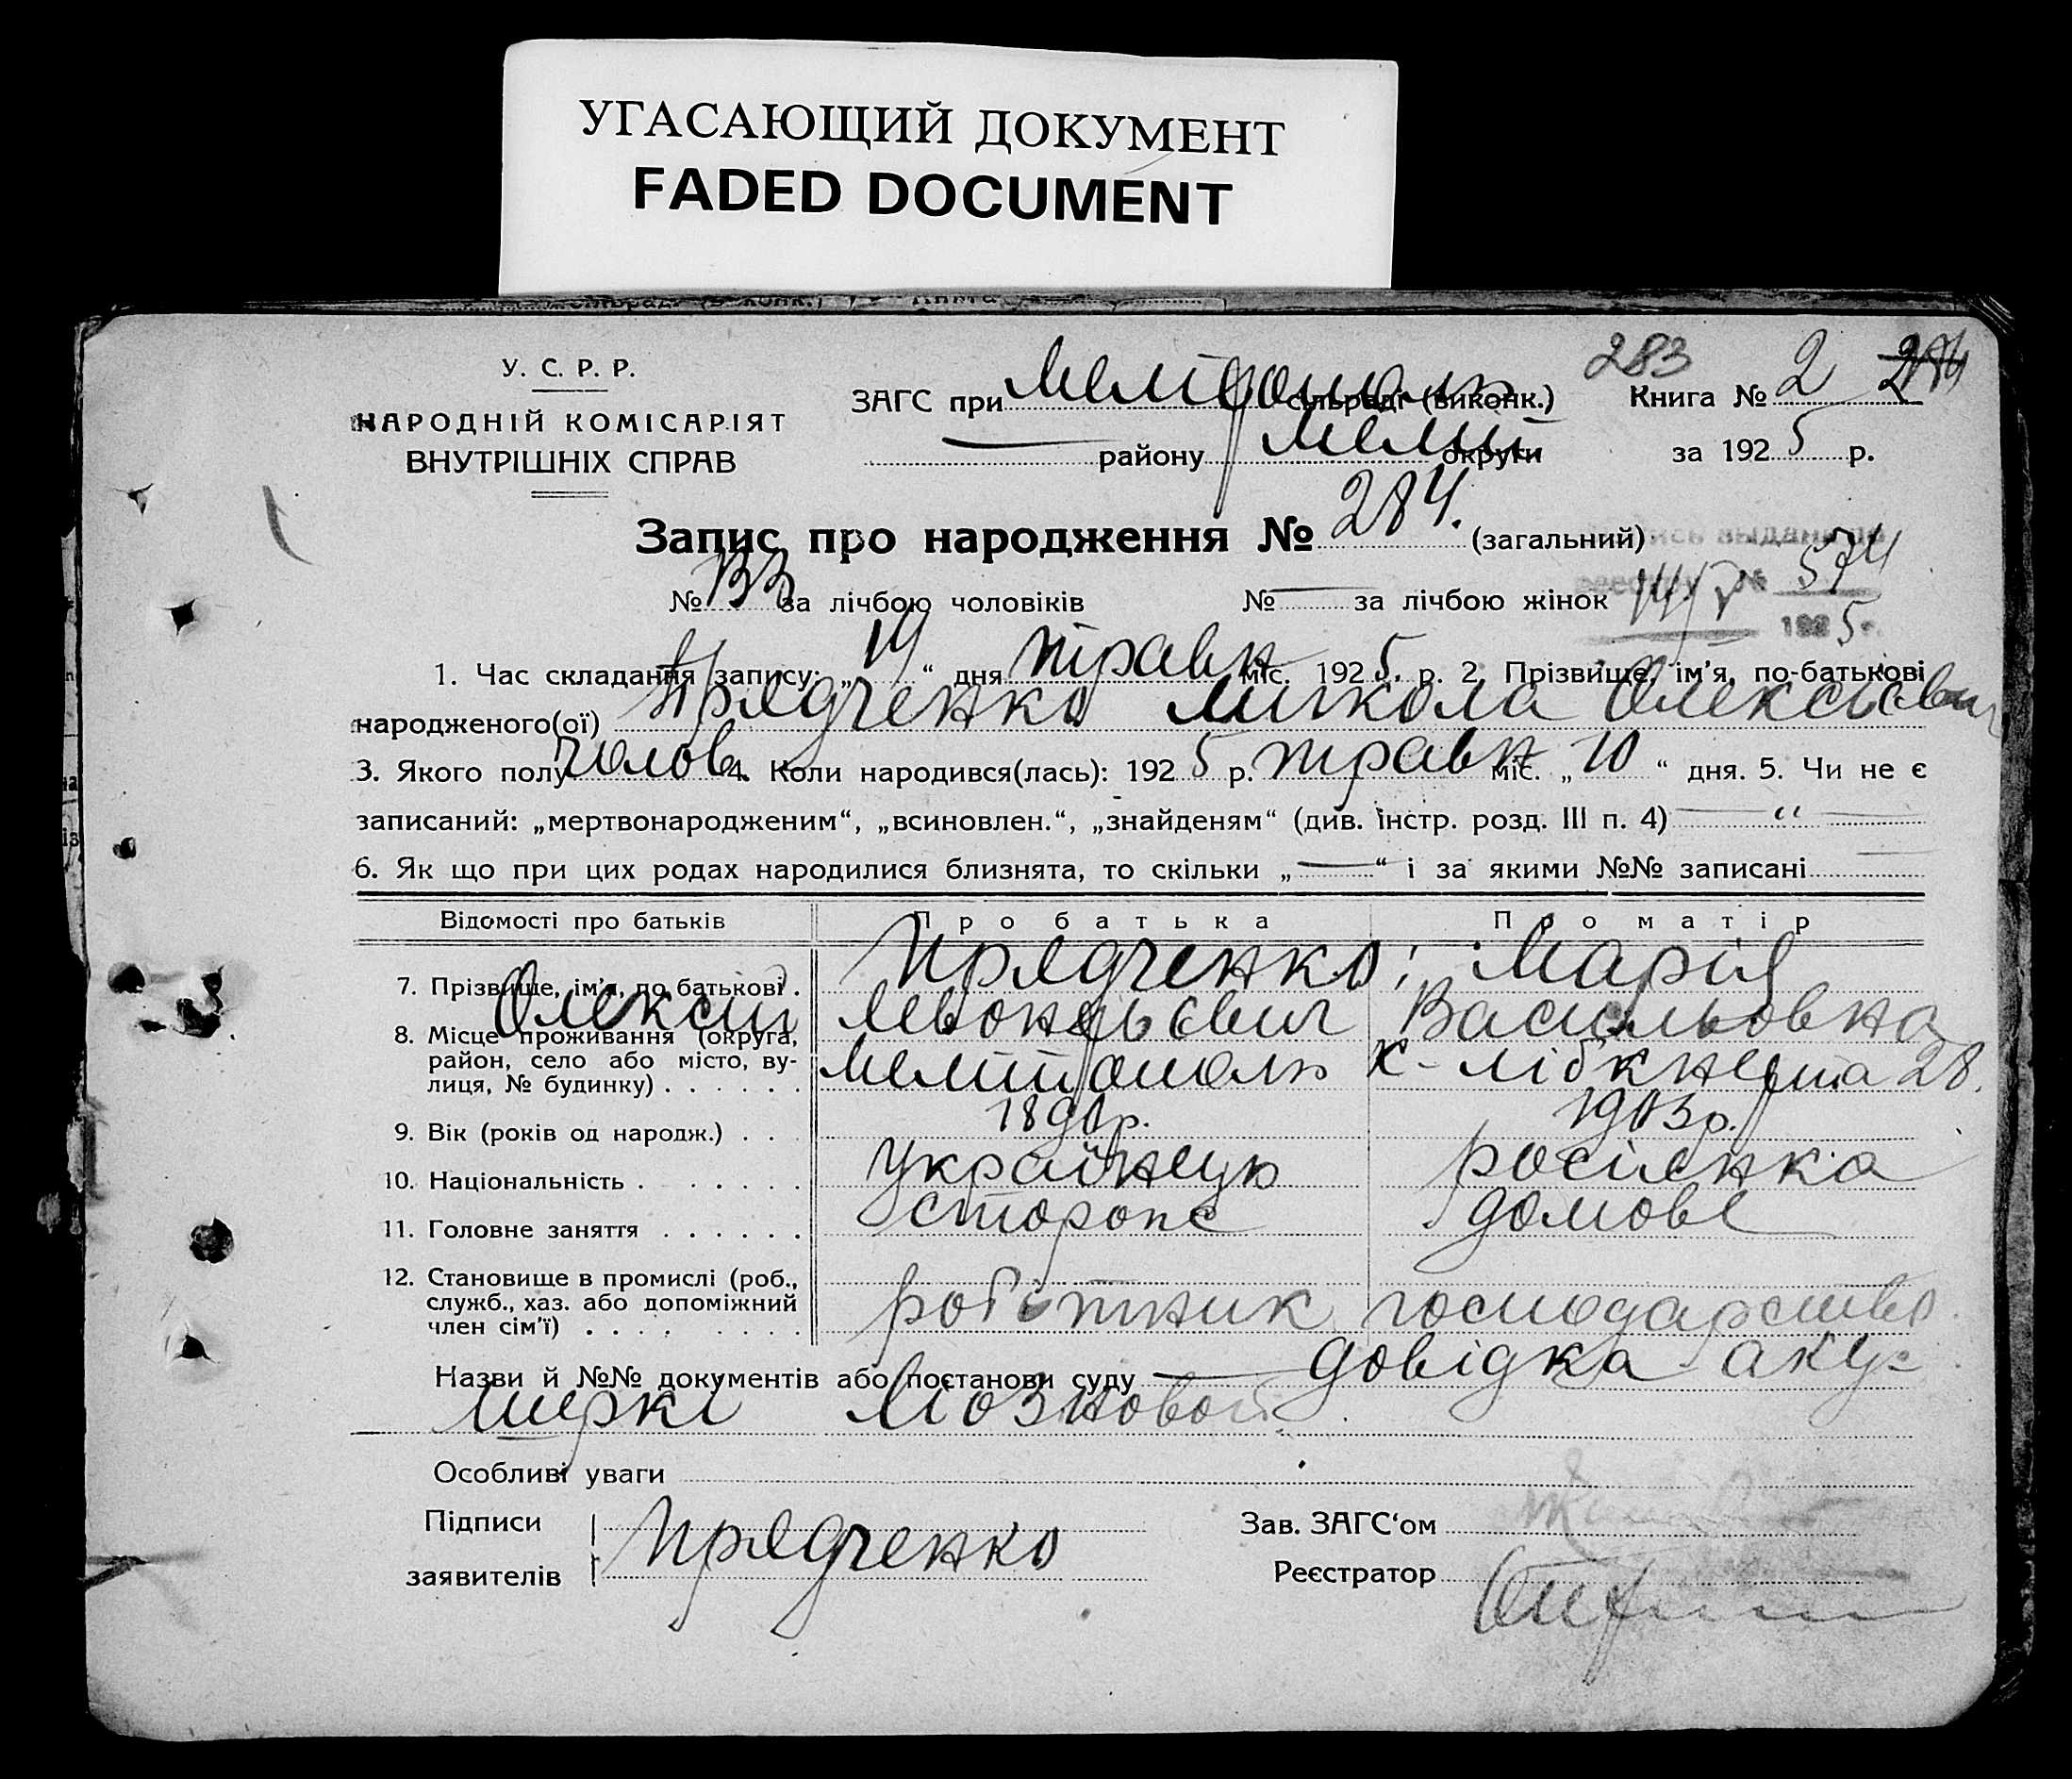 УГАСАЮЩИЙ ДОКУМЕНТ
FADED DOCUMENT
283
У. С. Р. Р.
ЗАГС при Мелітополь сільраді (виконк.) Книга № 2
НАРОДНІЙ КОМІСАРІЯТ
ВНУТРІШНІХ СПРАВ
району Меліт округи за 1925 р.
Запис про народження № 284. (загальний)
№ 133 за лічбою чоловіків № — за лічбою жінок
574
1925 г.
1. Час складання запису: „19“ дня травн міс. 1925 р. 2. Прізвище, ім'я, по-батькові
народженого(ої) Прядченко Микола Олексієвич
3. Якого полу чолов. 4. Коли народився(лась): 1925 р. травн міс. „10“ дня. 5. Чи не є
записаний: „мертвонародженим“, „всиновлен.“, „знайденям“ (див. інстр. розд. III п. 4) — “ —
6. Як що при цих родах народилися близнята, то скільки „—“ і за якими №№ записані
Відомості про батьків Про батька Про матір
7. Прізвище, ім'я, по батькові . Прядченко; Марія
Олексій Левонтьєвич Васильовна
8. Місце проживання (округа,
район, село або місто, ву-
лиця, № будинку) . . . . . . Мелітополь К-Лібкнехта 28.
9. Вік (років од народж.) . . 1890р. 1903р.
10. Національність . . . . . . українець росіянка
11. Головне заняття . . . . . . сторож домове
12. Становище в промислі (роб.,
служб., хаз. або допоміжний
член сім'ї) . . . . . . . . робітник господарство
Назви й №№ документів або постанови суду — довідка аку-
шеркі Мозновой
Особливі уваги
Підписи
заявителів Прядченко
Зав. ЗАГС‘ом
Реєстратор